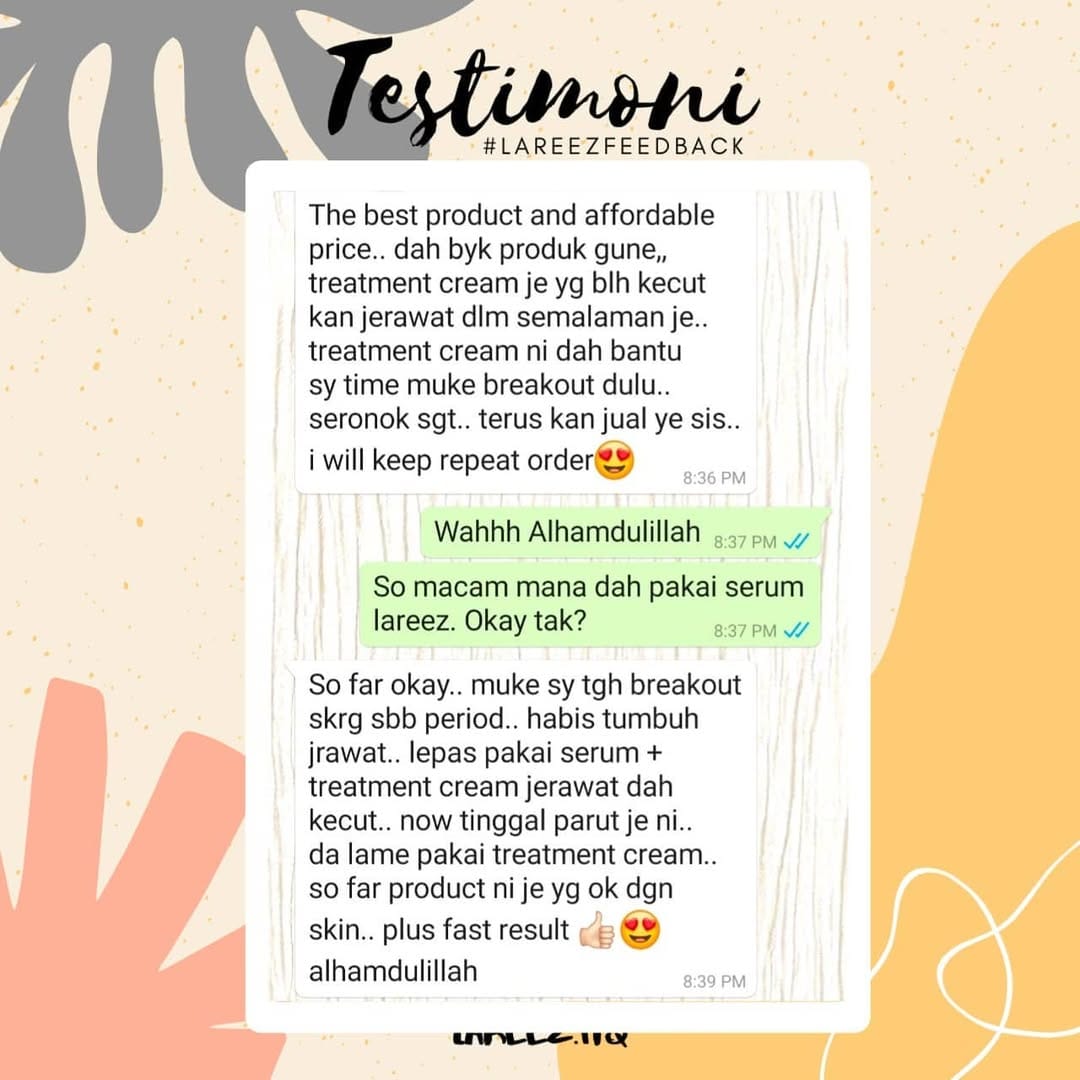 Testimoni
#LAREEZFEEDBACK
The best product and affordable
price.. dah byk produk gune,,
treatment cream je yg blh kecut
kan jerawat dlm semalaman je..
treatment cream ni dah bantu
sy time muke breakout dulu..
seronok sgt.. terus kan jual ye sis..
i will keep repeat order😍
8:36 PM
Wahhh Alhamdulillah
8:37 PM
So macam mana dah pakai serum
lareez. Okay tak?
8:37 PM
So far okay.. muke sy tgh breakout
skrg sbb period.. habis tumbuh
jrawat.. lepas pakai serum +
treatment cream jerawat dah
kecut.. now tinggal parut je ni..
da lame pakai treatment cream..
so far product ni je yg ok dgn
skin.. plus fast result 👍🏻😍
alhamdulillah
8:39 PM